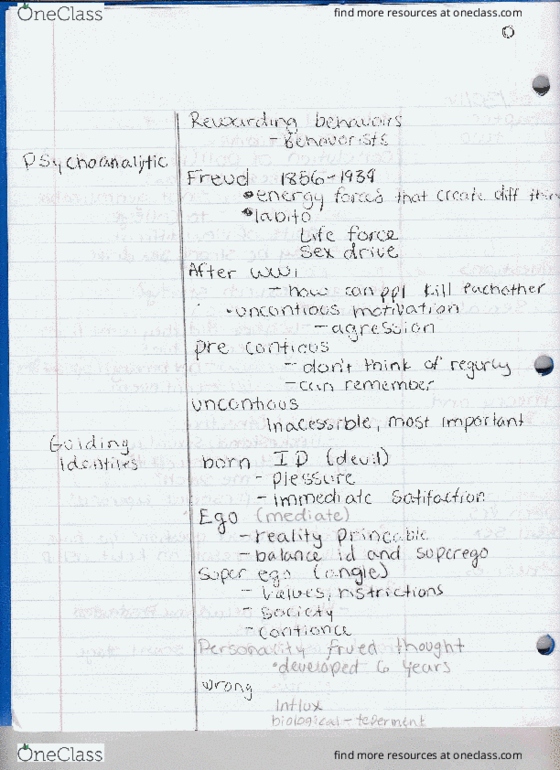 OneClass
find more resources at oneclass.com
Rewarding behavoirs
- Behavorists
Psychoanalytic
Freud 1856-1939
• energy forces that create diff thin
• labito
Life force
Sex drive
After WWI
- how can ppl kill eachother
• uncontious motivation
- agression
pre contious
- don't think of regurly
- can remember
uncontious
Inacessible, most important
Guiding
Identites
born ID (devil)
- plessure
- immediate satifaction
Ego (mediate)
- reality princable
- balance id and superego
Super ego (angle)
- values, ristrictions
- society
- contionce
Personality frued thought
• developed 6 years
wrong
Influx
biological - teperment
OneClass
find more resources at oneclass.com